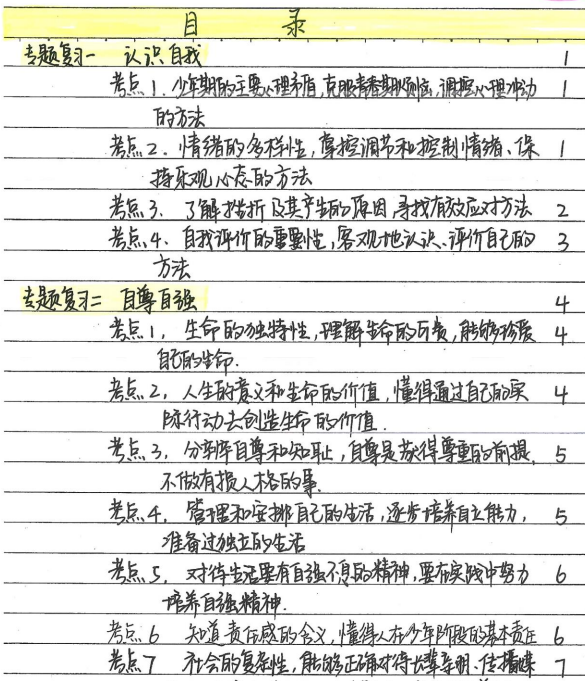 目 录
专题复习一 认识自我 1
考点1. 少年期的主要心理矛盾,克服青春期烦恼,调控心理冲动 1
的方法
考点2. 情绪的多样性,掌控调节和控制情绪、保 1
持乐观心态的方法
考点3. 了解挫折及其产生的原因,寻找有效应对方法 2
考点4. 自我评价的重要性,客观地认识、评价自己的 3
方法
专题复习二 自尊自强 4
考点1, 生命的独特性,理解生命的可贵,能够珍爱 4
自己的生命.
考点2, 人生的意义和生命的价值,懂得通过自己的实 4
际行动去创造生命的价值.
考点3, 分辨自尊和知耻,自尊是获得尊重的前提, 5
不做有损人格的事.
考点4, 管理和安排自己的生活,逐步培养自立能力, 5
准备过独立的生活
考点5, 对待生活要有自强不息的精神,要在实践中努力 6
培养自强精神.
考点6 知道责任感的含义,懂得人在少年阶段的基本责任 6
考点7 社会的复杂性,能够正确对待 亲朋、传播媒 7